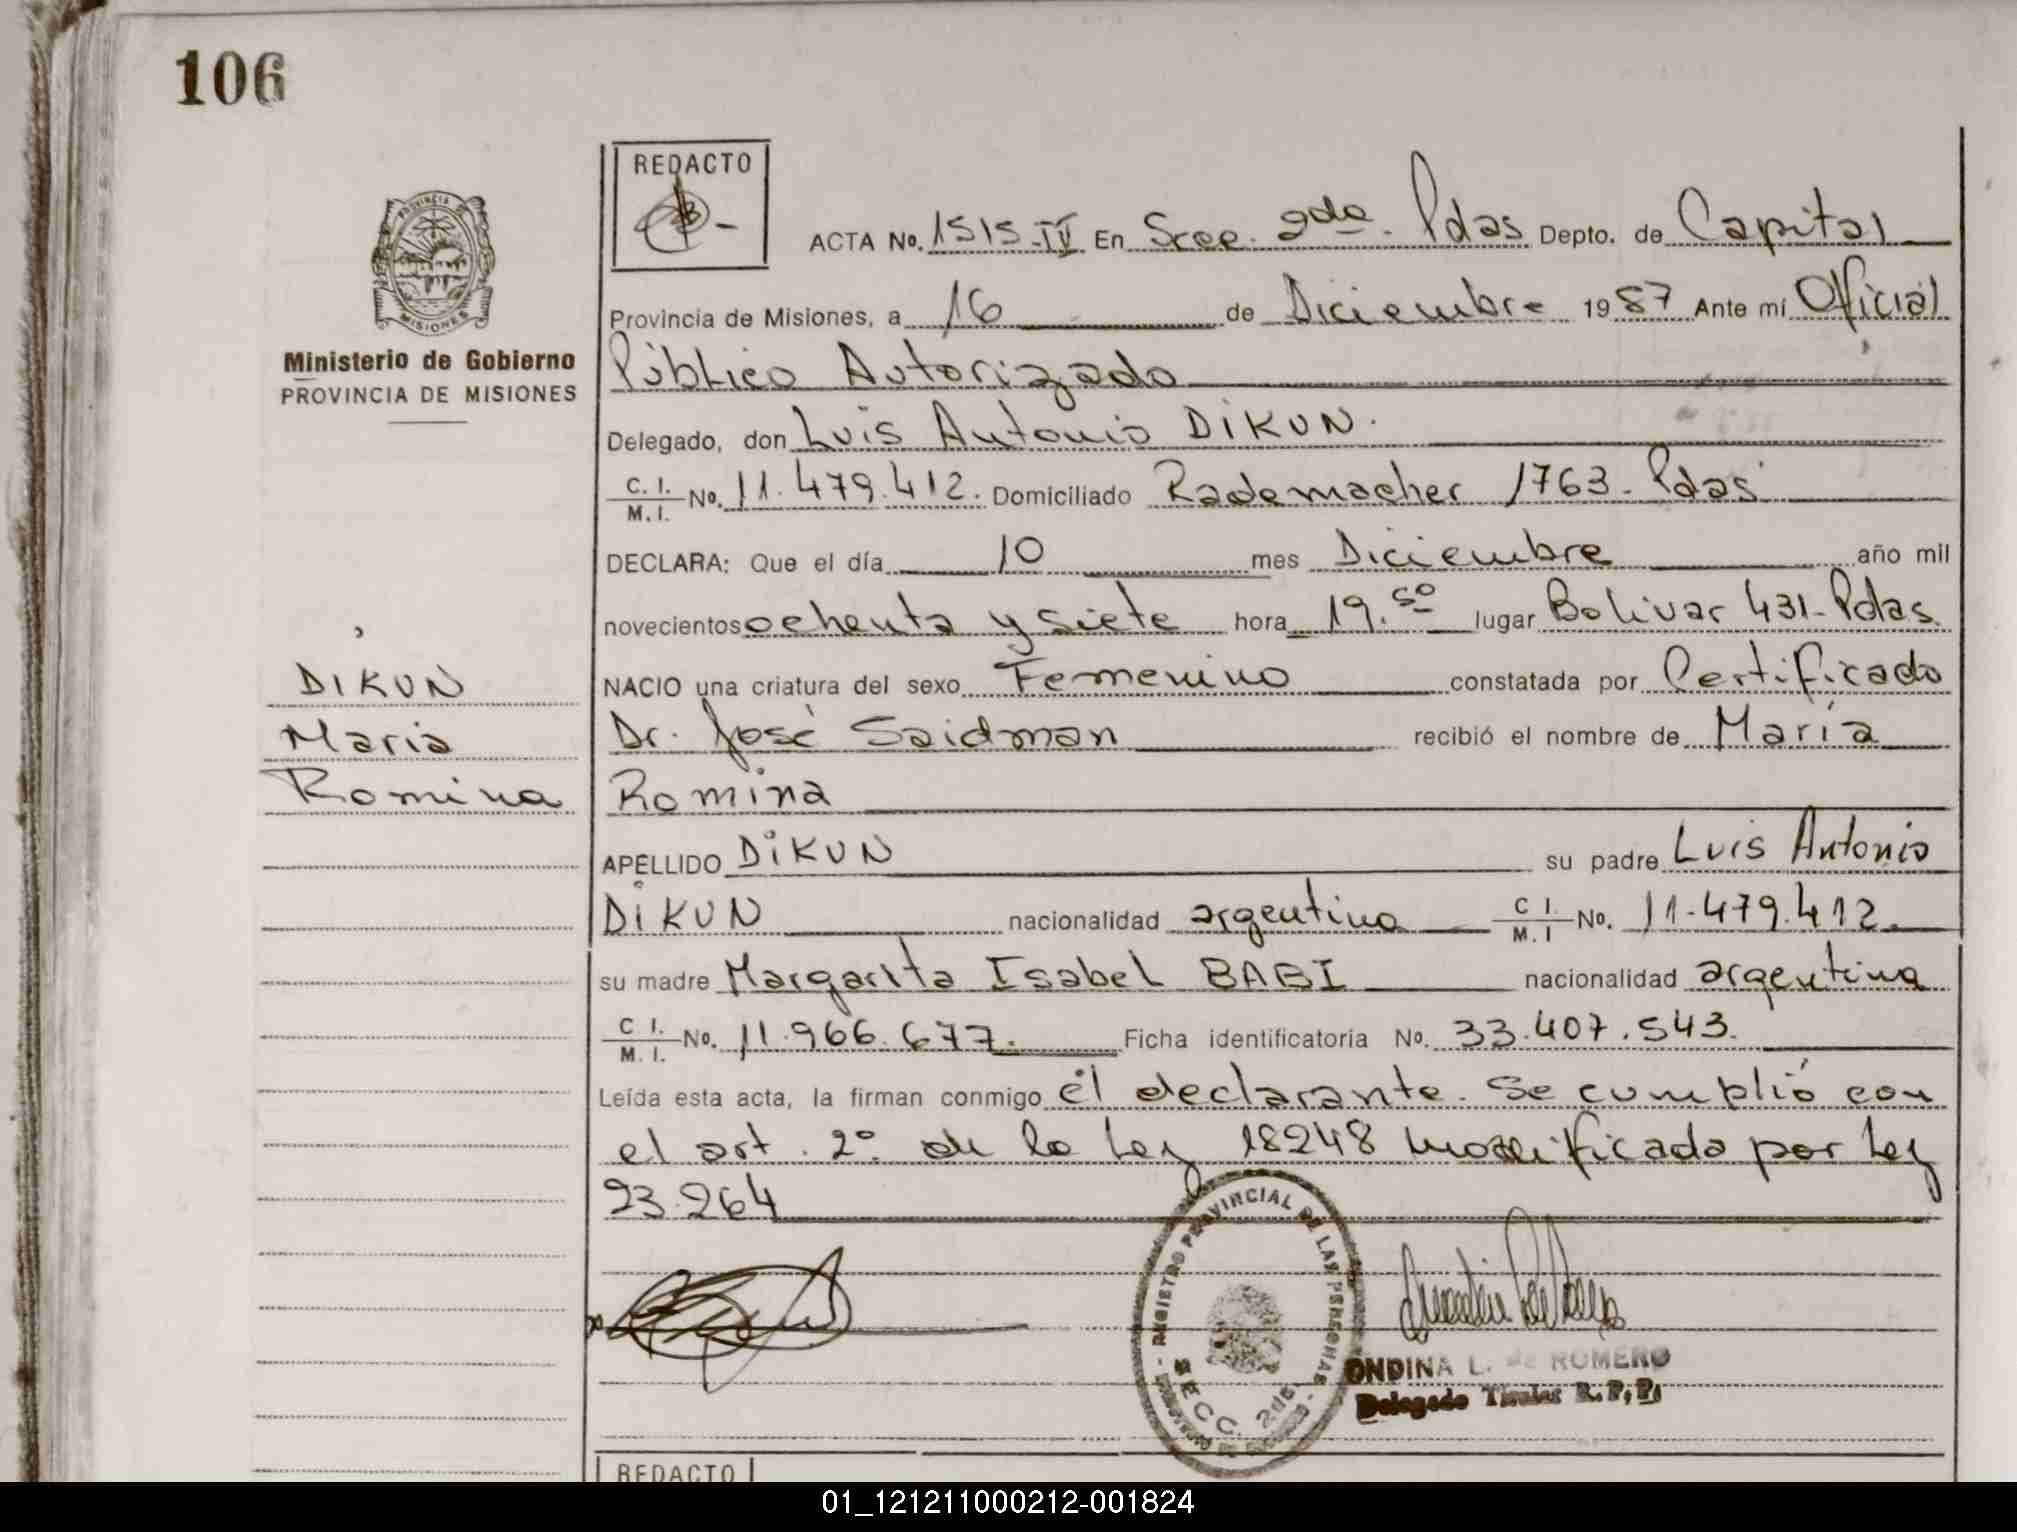 106
REDACTO
ACTA No. 1515-IV En Secc. 2da. Pdas Depto. de Capital
PROVINCIA DE MISIONES
Provincia de Misiones, a 16 de Diciembre 1987 Ante mí Oficial
Ministerio de Gobierno
PROVINCIA DE MISIONES
Público Autorizado
Delegado, don Luis Antonio DIKUN.
C. I. M. I. No. 11.479.412. Domiciliado Rademacher 1763-Pdas
DECLARA: Que el día 10 mes Diciembre año mil
novecientos ochenta y siete hora 19.50 lugar Bolivar 431-Pdas.
NACIO una criatura del sexo Femenino constatada por Certificado
Dr. José Saidman recibió el nombre de María
Romina
DIKUN
Maria
Romina
APELLIDO DIKUN su padre Luis Antonio
DIKUN nacionalidad argentina C I. M. I No. 11.479.412.
su madre Margarita Isabel BABI nacionalidad argentina
C I. M. I. No. 11.966.677. Ficha identificatoria No. 33.407.543.
Leída esta acta, la firman conmigo el declarante. Se cumplió con
el art. 2º de la Ley 18248 modificado por Ley
23.264
REGISTRO PROVINCIAL DE LAS PERSONAS
SECC. 2da.
ONDINA L. de ROMERO
Delegado Titular R. P. P.
REDACTO
01_121211000212-001824